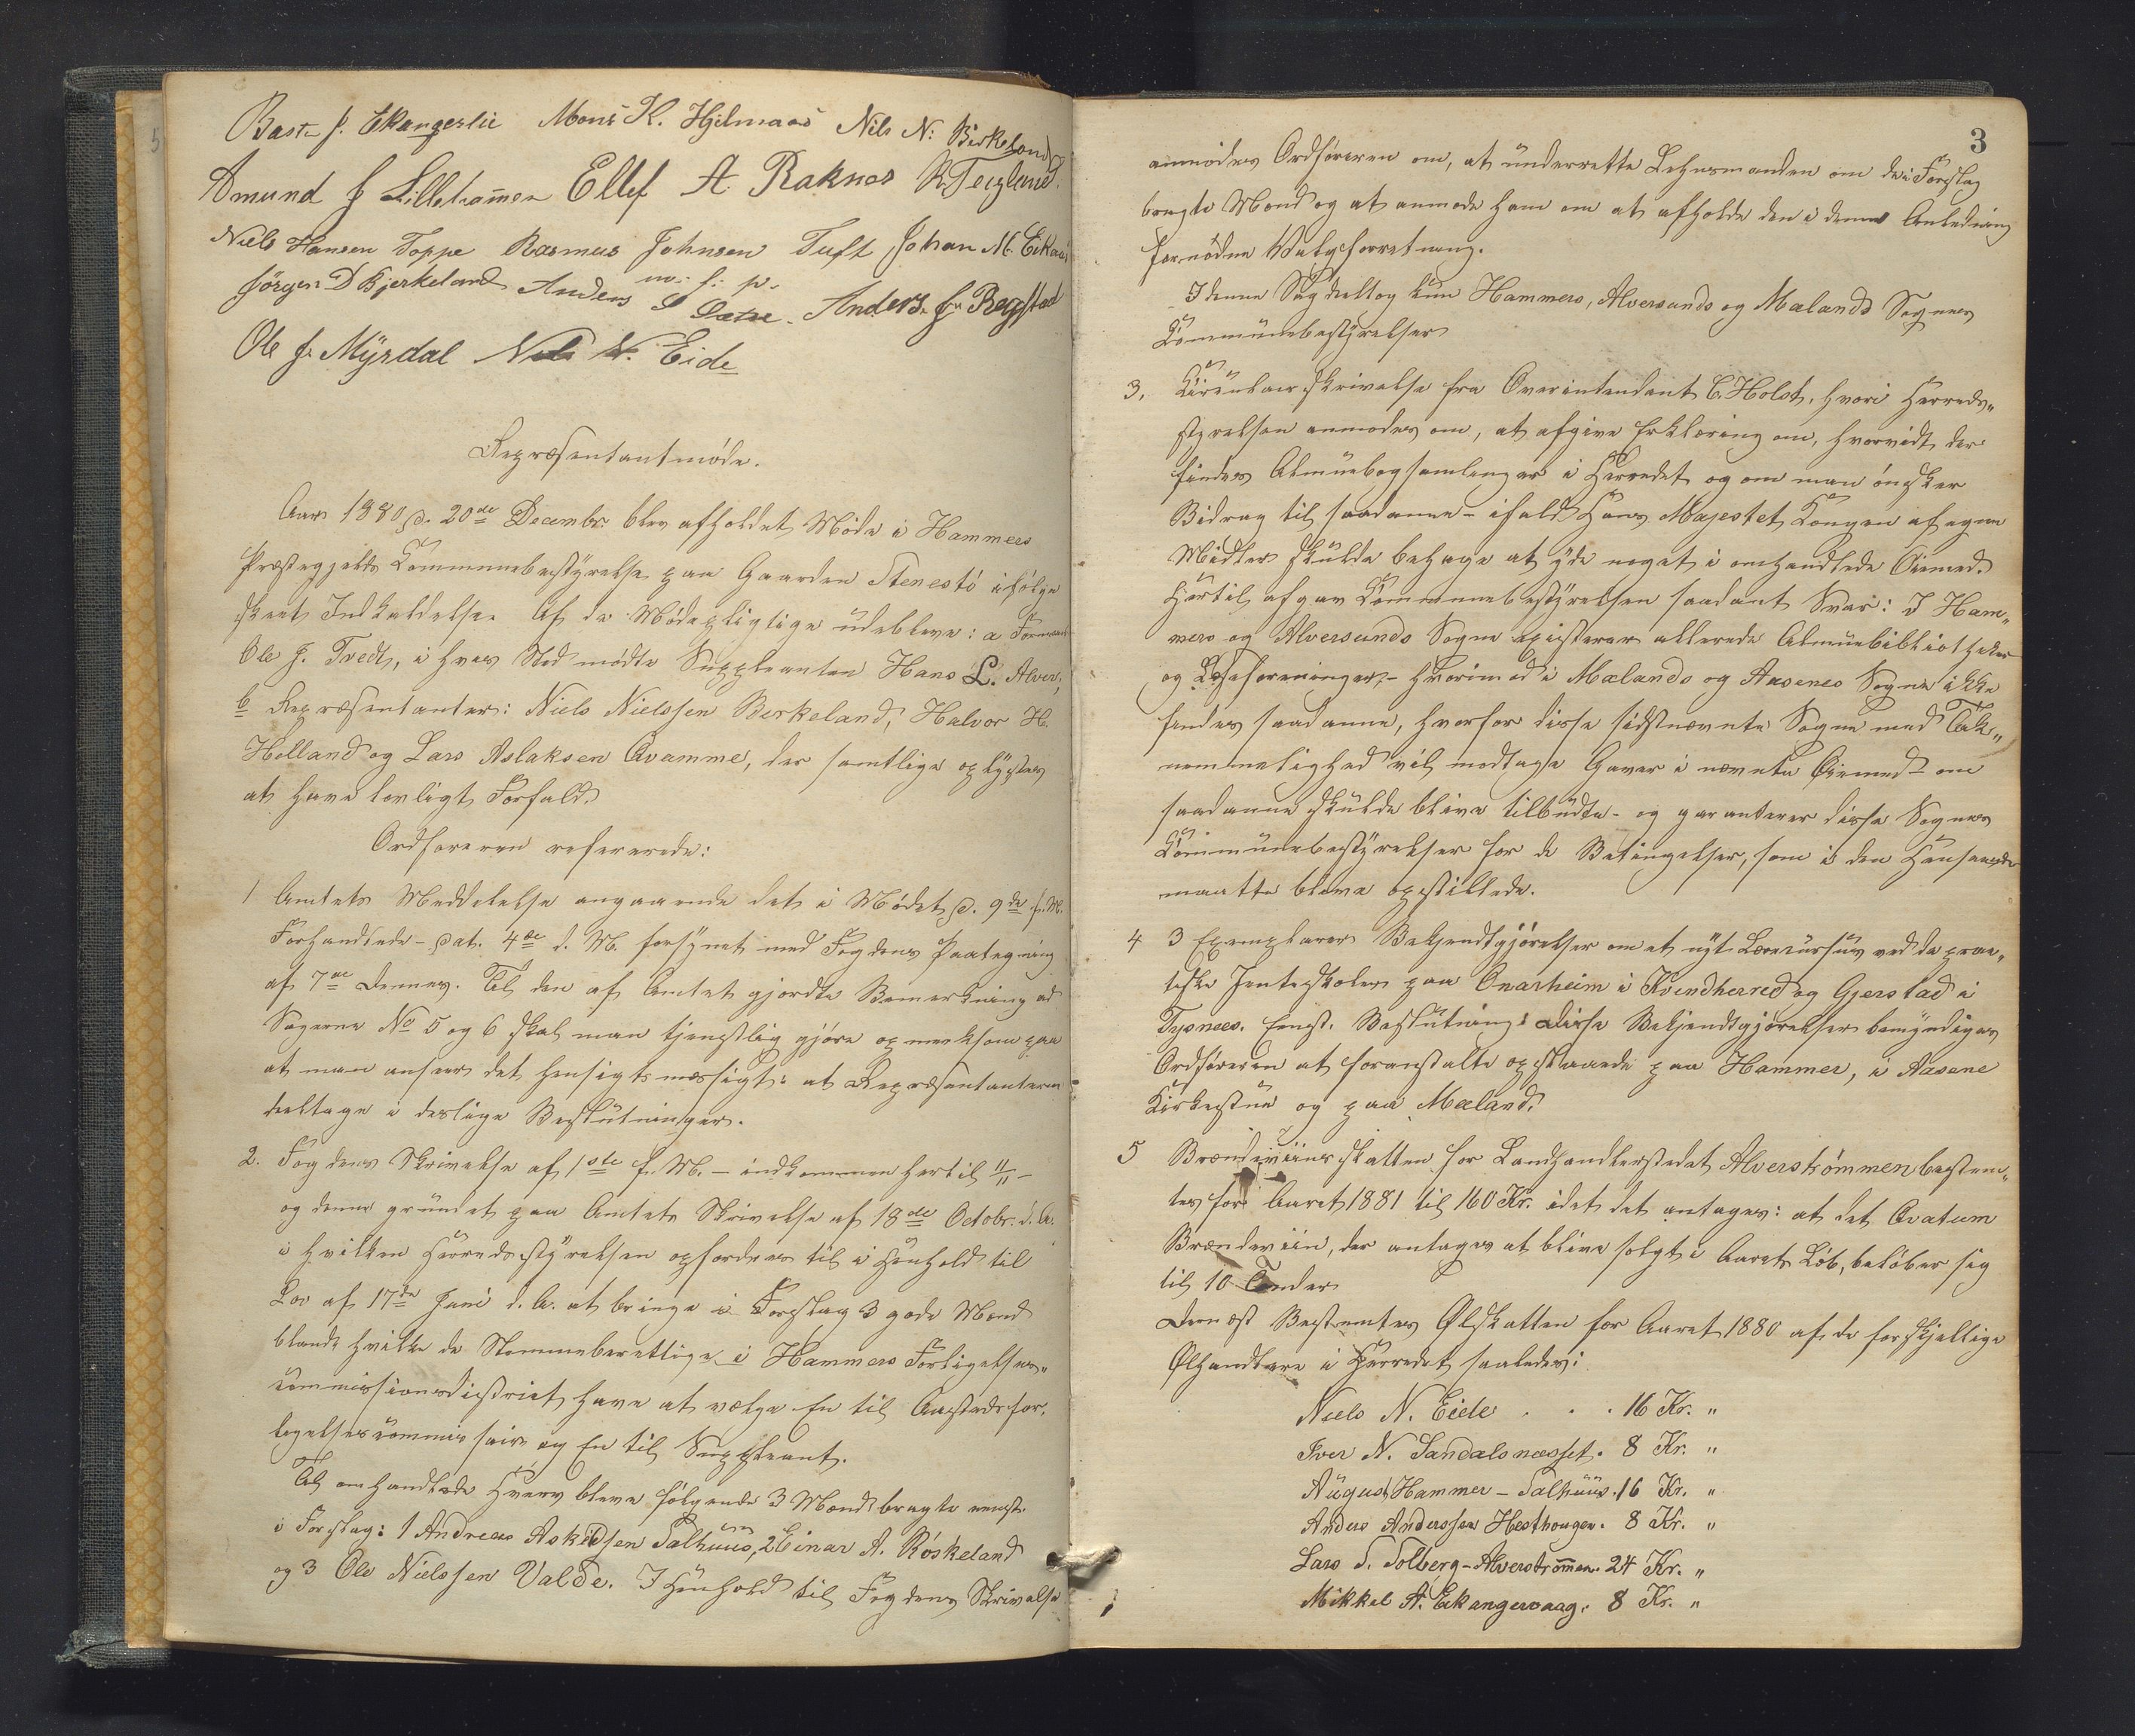 Bastn J. Ekangerlie Mons K. Hjelmaas Nils N: Birkeland
Amund J Lilletrommen Ellef A Raknes R Teigland.
Niels Hansen Toppe Rasmus Johnsen Tuft Johan M. Eikaas
m. f. p.
Jörgen D Bjerkeland Anders Sætre. Anders J. Regstad
Ole J. Myrdal Nils N. Eide
Repræsentantmöde.
Aar 1880 d. 20de Decembr. blev afholdet Möde i Hammers
Præstegjelds Kommunebestyrelse paa Gaarden Stenestö ifölge
skeet Indkaldelse. Af de Mödepligtige udebleve: a Formand
Ole J. Tvedt, i hvis Sted mödte Suppleanten Hans L. Alver,
b Repræsentanter: Niels Nielssen Berkeland, Halvor H.
Helland og Lars Aslaksen Qvamme, der samtlige oplystes
at have lovligt Forfald.
Ordföreren refererede:
1 Amtets Meddelelse angaaende det i Mödet d. 9de f. M.
Forhandlede – dat. 4de d. M. forsynet med Fogdens Paategning
af 7de dennes. Til den af Amtet gjordte Bemærkning ad
Sagerne No 5 og 6 skal man tjenstlig gjöre opmerksom paa
at man anseer det hensigtsmæssigt: at Repræsentanterne
deeltage i deslige Beslutninger.
2. Fogdens Skrivelse af 1ste f. M. – indkommen hertil 11/11 –
og denne grundet paa Amtets Skrivelse af 18de Octobr. d. A.
i hvilken Herredsstyrelsen opfordres til i Henhold til
Lov af 17de Juni d. A. at bringe i Forslag 3 gode Mænd
blandt hvilke de Stemmeberettige i Hammers Forligelses„
commissionsdistrict have at vælge En til Aastedsfor„
ligelsescommissair og En til Suppleant.
Til omhandlede Hverv bleve fölgende 3 Mænd bragte eenst.
i Forslag: 1 Andreas Askildsen Salhuus, 2 Einar A. Röskeland
og 3 Ole Nielssen Valde. I Henhold til Fogdens Skrivelse
3
anmodes Ordföreren om, at underrette Lehnsmanden om de i Forslag
bragte Mænd og at anmode ham om at afholde den i denne Anledning
fornödne Valgforretning.
I denne Sag deeltog kun Hammers, Alversunds og Mælands Sognes
Kommunebestyrelser
3. Cirkulairskrivelse fra Overintendant C. Holst, hvori Herreds„
styrelsen anmodes om, at afgive Erklæring om, hvorvidt der
findes Almuebogsamlinger i Herredet og om man önsker
Bidrag til saadanne – ifald Hans Majestet Kongen af egne
Midler skulde behage at yde noget i omhandlede Öiemed.
Hertil afgav Kommunebestyrelsen saadant Svar: I Ham„
mers og Alversunds Sogne existerer allerede Almuebibliotheker
og Læseforeninger, – hvorimod i Mælands og Aasenes Sogne ikke
findes saadanne, hvorfor disse sidstnævnte Sogne med Tak„
nemmelighed vil modtage Gaver i nævnte Öiemed – om
saadanne skulde blive tilbudte – og garanterer disse Sognes
Kommunebestyrelser for de Betingelser, som i den Henseende
maatte blive opstillede.
4 3 Exemplarer Bekjendtgjörelser om et nyt Lærecursus ved de prak„
tiske Jenteskoler paa Onarheim i Kvindherred og Gjerstad i
Tysnees. Eenst. Beslutning: Disse Bekjendtgjörelser bemyndiges
Ordföreren at foranstalte opslaaede paa Hammer, i Aasene
Kirkestue og paa Mæland.
5 Brændeviinsskatten for Landhandlerstedet Alverströmmen bestem„
tes for Aaret 1881 til 160 Kr. idet det antages: at det Qvatum
Brændeviin, der antages at blive solgt i Aarets Löb, belöber sig
til 10 Tönder
Dernæst Bestemtes Ölskatten for Aaret 1880 af de forskjellige
Ölhandlere i Herredet saaledes:
Niels N. Eide . . . 16 Kr. „
Iver N. Sandalsnæsset. 8 Kr. „
August Hammer – Salhuus. 16 Kr. „
Anders Anderssen Hesthougen. 8 Kr. „
Lars S. Solberg – Alverströmmen. 24 Kr. „
Mikkel A. Eikangervaag. 8 Kr. „